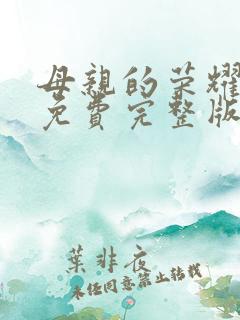 母親的荣耀
免費完整版
葉非夜
未任同意禁止转载